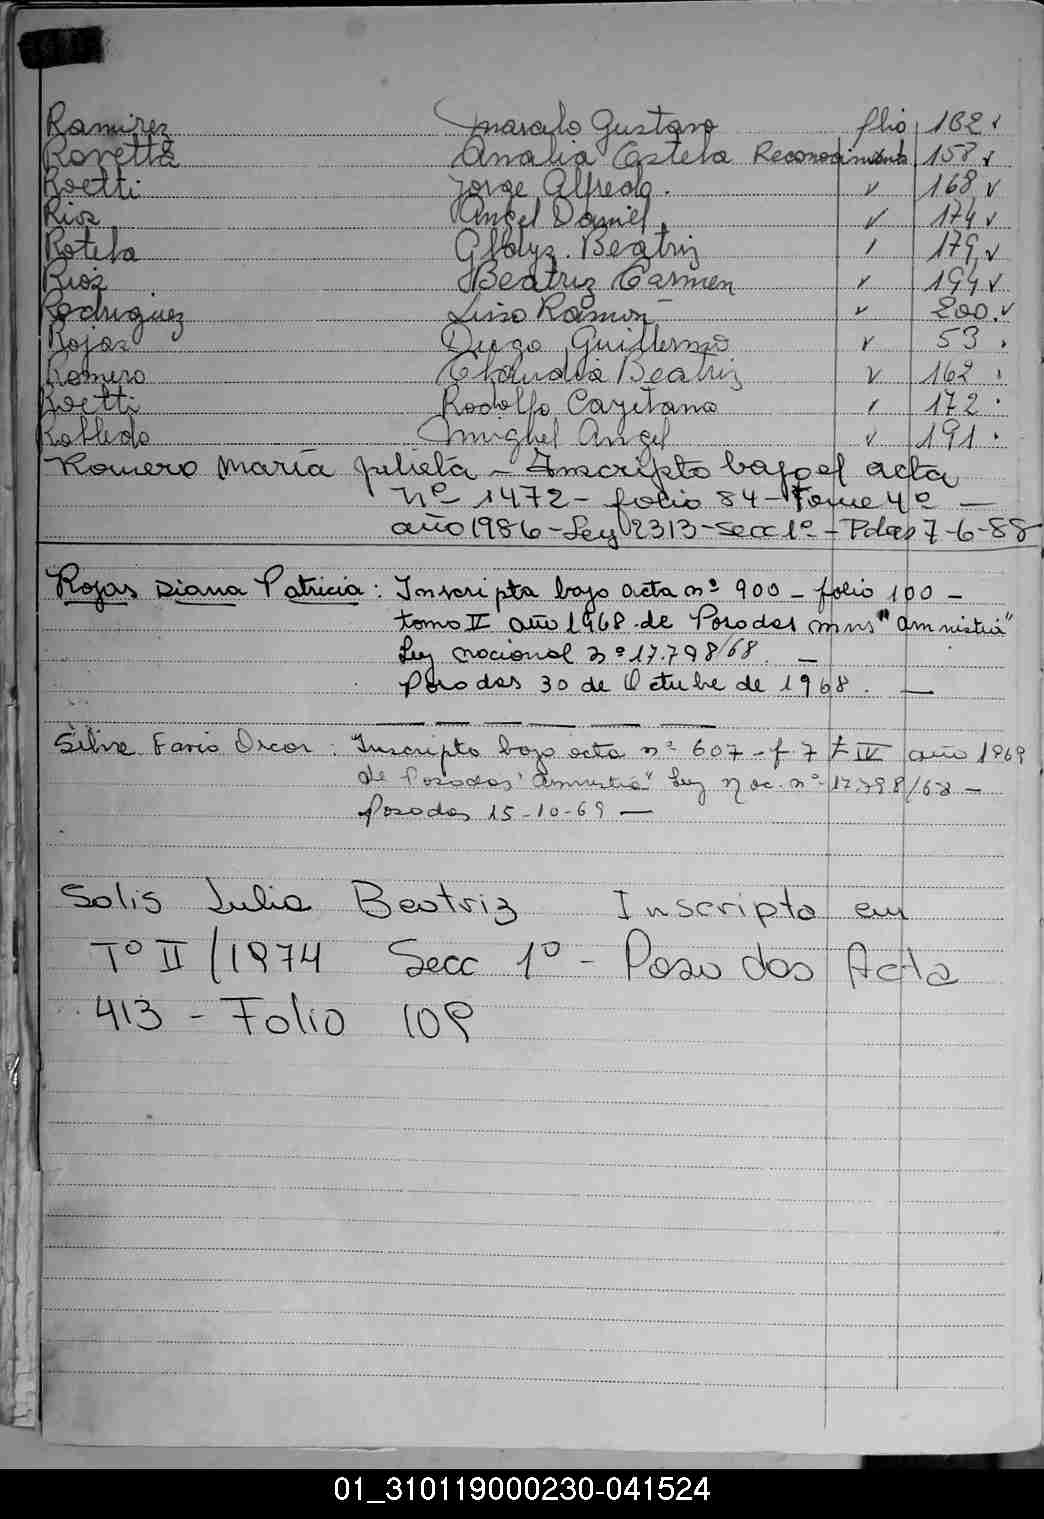 Ramirez Marcelo Gustavo folio 162 ✓
Rovetta Analia Estela Reconocimiento 158 ✓
Roetti Jorge Alfredo. ✓ 168 ✓
Rios Angel Daniel ✓ 174 ✓
Rotela Gladys Beatriz ✓ 179 ✓
Rios Beatriz Carmen ✓ 194 ✓
Rodriguez Lino Ramon ✓ 200. ✓
Rojas Diego Guillermo ✓ 53 .
Romero Claudia Beatriz ✓ 162 .
Roetti Rodolfo Cayetano ✓ 172 .
Robledo Miguel Angel ✓ 191 .
Romero María Julieta - Inscripto bajo el acta
Nº 1472 - folio 84 - Tomo 4º -
año 1986 - Ley 2313 - Secc 1º - Pdas 7-6-88
Rojas Diana Patricia: Inscripta bajo acta nº 900 - folio 100 -
tomo II año 1968 de Posadas mns "amnistia"
Ley nacional nº 17.798/68. -
Posadas 30 de Octubre de 1968. -
Silva Oscar: Inscripto bajo acta nº 607 - f. 7 t IV año 1969
de Posadas "amnistia" Ley nac. nº 17.798/68 -
Posadas 15-10-69 -
Solis Julia Beatriz Inscripta en
Tº II/1974 Secc 1º - Posadas Acta
413 - Folio 109
01_310119000230-041524